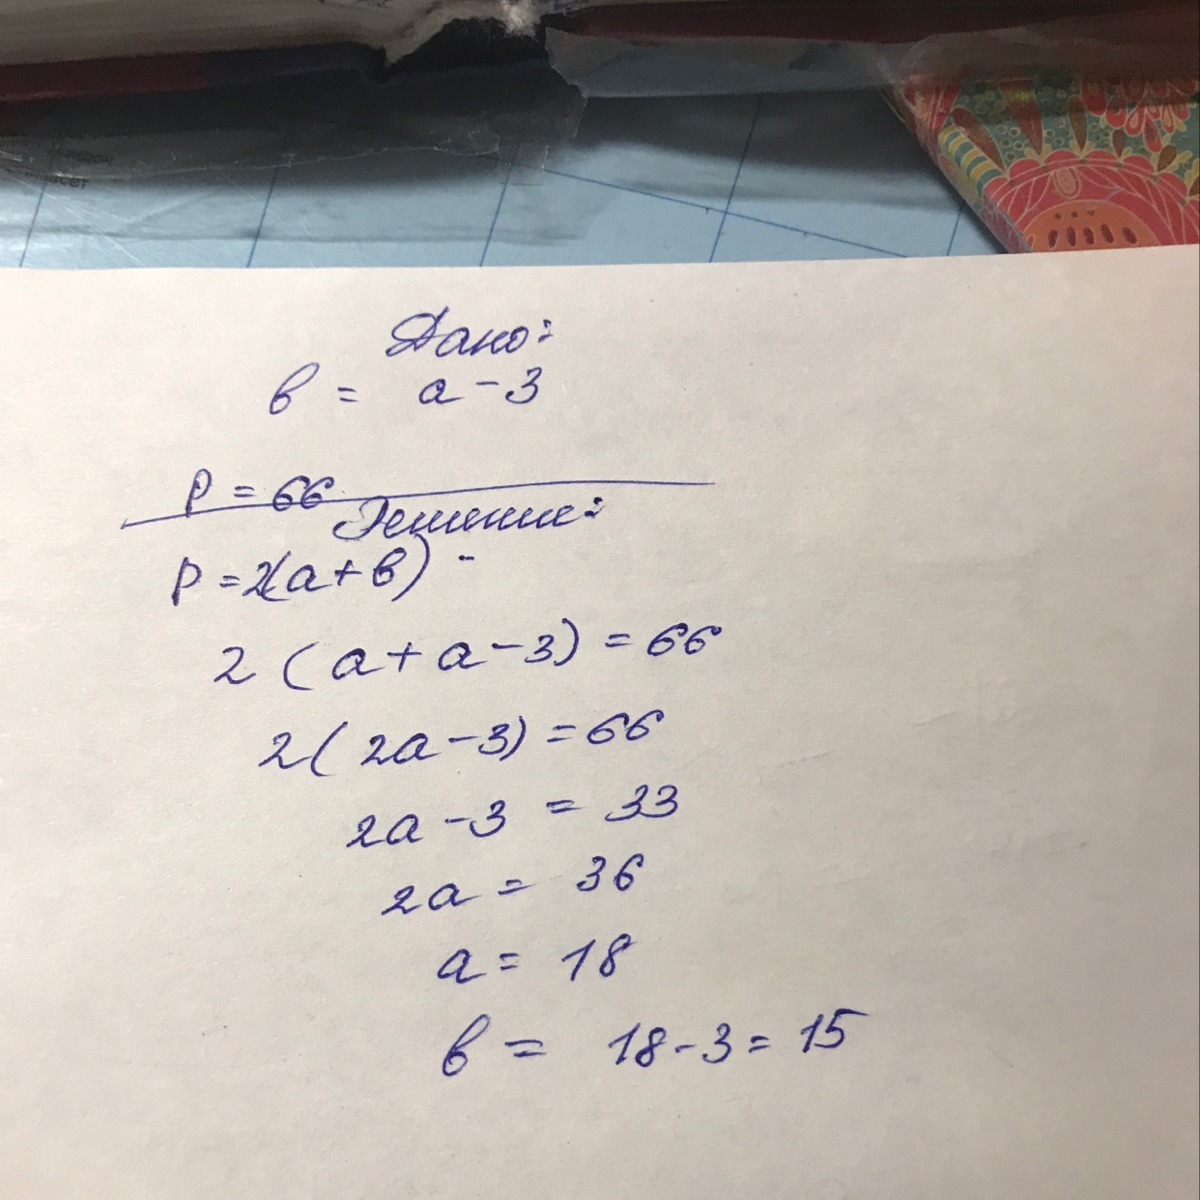 Дано:
в = а - 3
P = 66
Решение:
P = 2(а + в) -
2 (а + а - 3) = 66
2 ( 2а - 3) = 66
2а - 3 = 33
2а = 36
а = 18
в = 18 - 3 = 15